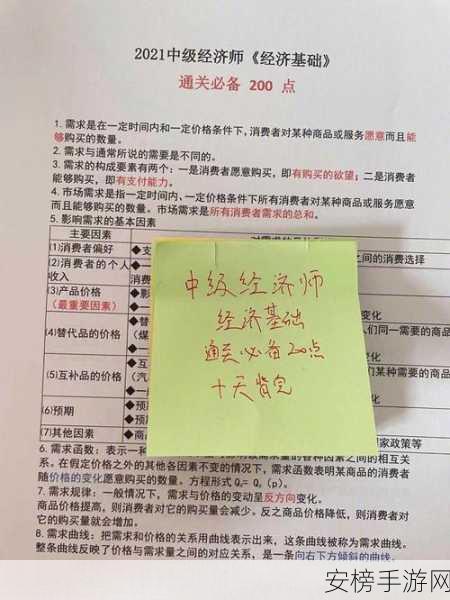 2021中级经济师《经济基础》
通关必备 200 点
1. 需求是在一定时间内和一定价格条件下，消费者对某种商品或服务愿意而且能
够购买的数量。
2. 需求与通常所说的需要是不同的。
3. 需求的构成要素有两个：一是消费者愿意购买，即有购买的欲望；二是消费者
能够购买，即有支付能力。
4. 市场需求是指一定时间内、一定价格条件下所有消费者对某种商品或服务愿意
而且能够购买的数量。市场需求是所有消费者需求的总和。
5. 影响需求的基本因素
主要因素
(1)消费者偏好 ◆支 之间的消费选择
(2)消费者的个人 ◆一
收入 消费
(3)产品价格 ◆影 变化
(最重要因素) ◆一
(4)替代品的价格 ◆替 人们同一需要的商品
(煤
◆一
(5)互补品的价格 ◆互 们某种需要的商品
(汽
◆一 变化
(6)预期 ◆预
◆预
(7)其他因素 ◆商 国家政策等
中级经济师
经济基础
通关必备200点
十天背完
6. 需求函数：表示一种 影响该需求量的各种因素之间的相互关
系。在假定价格之外的其他各因素不变的情况下，需求函数表明某商品的消费者
随价格的变化愿意购买的数量。方程形式 Qd= Qd (p)。
7. 需求规律：一般情况下，需求与价格的变动呈反方向变化。
商品价格提高，则消费者对它的购买量会减少。反之商品价格降低，则消费者对
它的购买量就会增加。
8. 需求曲线：把需求和价格的关系用曲线表示出来，这条曲线被称为需求曲线。
整条曲线反映了价格与需求量之间的对应关系，是一条向右下方倾斜的曲线。
安榜手游网